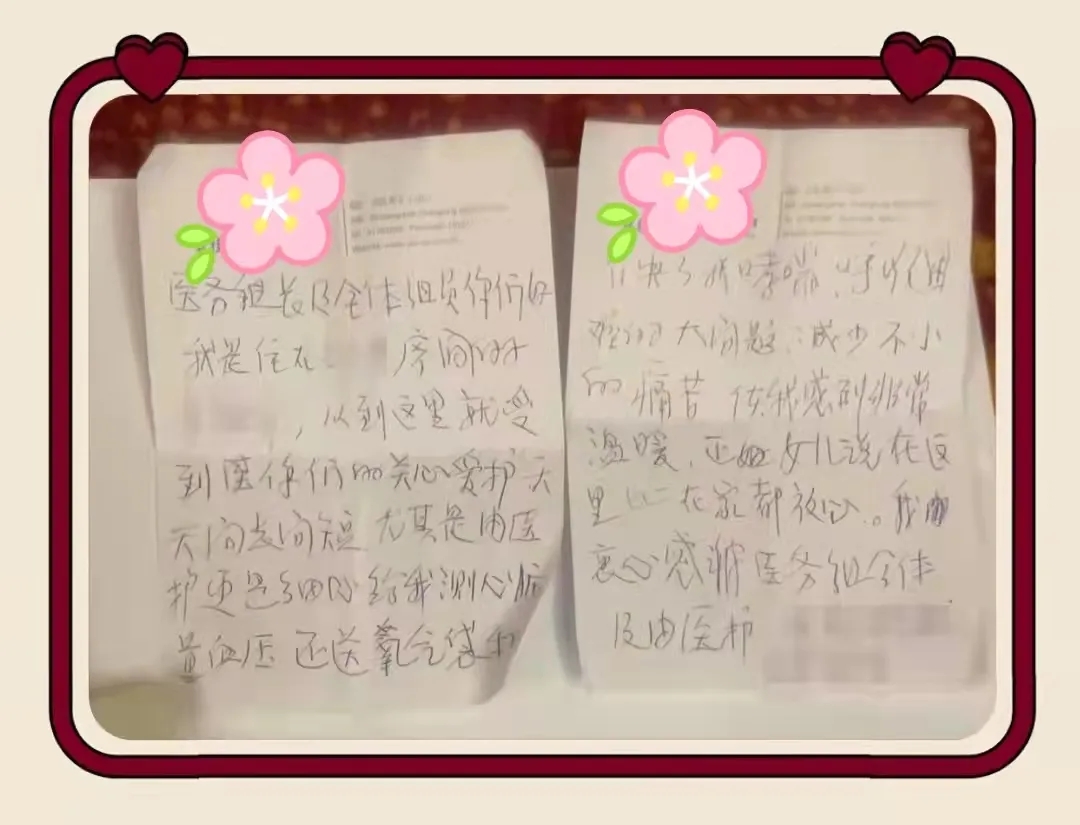 医务组长及全体组员你们好
我是住在 房间的
，从到这里就受
到医你们的关心爱护天
天问长问短 尤其是由医
护更是细心给我测心脏
量血压 还送氧气袋
解决了我哮喘，呼吸困
难的大问题，减少不小
的痛苦 使我感到非常
温暖，正如女儿说在这
里比在家都放心。我由
衷心感谢医务组全体
及由医护